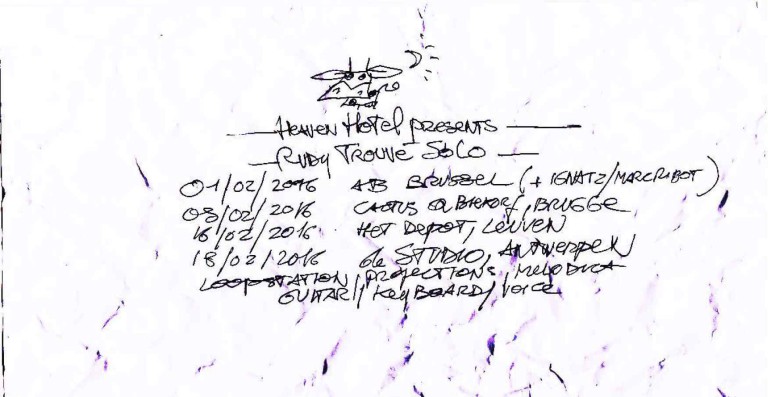 HEAVEN HOTEL PRESENTS
RUDY TROUVÉ SOLO
01/02/2016 AB BRUSSEL (+ IGNATZ/MARC RIBOT)
03/02/2016 CACTUS @ BIEKORF, BRUGGE
16/02/2016 HET DEPOT, LEUVEN
18/02/2016 de STUDIO, ANTWERPEN
LOOPSTATION / PROJECTIONS / MELODICA
GUITAR / KEYBOARD / VOICE